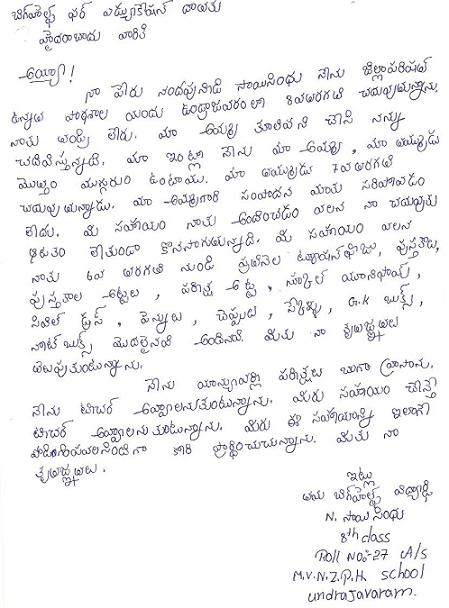 బిగ్‌హెల్ప్ ఫర్ ఎడ్యుకేషన్ దాతకు
హైదరాబాదు వారికి
అయ్యా!
నా పేరు నందపునీడి సాయిసింధు నేను జిల్లాపరిషత్
ఉన్నత పాఠశాల యందు ఉండ్రాజవరంలో 8వతరగతి చదువుతున్నాను.
నాకు తండ్రి లేరు. మా అమ్మ కూలిపని చేసి నన్ను
చదివిస్తున్నది. మా ఇంట్లో నేను మా అమ్మ, మా తమ్ముడు
మొత్తం ముగ్గురం ఉంటాము. మా తమ్ముడు 7వ తరగతి
చదువుతున్నాడు. మా అమ్మగారి సంపాదన మాకు సరిపోవడం
లేదు. మీ సహాయం నాకు అందించడం వలన నా చదువుకు
ఆటంకం లేకుండా కొనసాగుతున్నది. మీ సహాయం వలన
నాకు 6వ తరగతి నుండి ప్రతినెల ట్యూషన్‌ఫీజు, పుస్తకాలు,
పుస్తకాల అట్టలు, పరీక్ష అట్ట, స్కూల్ యూనిఫామ్,
సివిల్ డ్రస్, పెన్నులు, చెప్పులు, స్కెచ్స్, G.K బుక్స్,
నోట్‌బుక్స్ మొదలైనవి అందినవి. మీకు నా కృతజ్ఞతలు
తెలుపుకుంటున్నాను.
నేను యాన్యువల్లి పరీక్షలు బాగా వ్రాసాను.
నేను టీచర్ అవ్వాలనుకుంటున్నాను. మీరు సహాయం చేస్తే
టీచర్ అవ్వాలనుకుంటున్నాను. మీరు ఈ సహాయాన్ని ఇలాగే
కోరి ప్రార్థించుచున్నాను. మీకు నా
కృతజ్ఞతలు.
ఇట్లు
తమ బిగ్‌హెల్ప్ విద్యార్థి
N. సాయి సింధు
8th class
Roll No:-27 A/s
M.V.N.Z.P.H. School
undrajavaram.